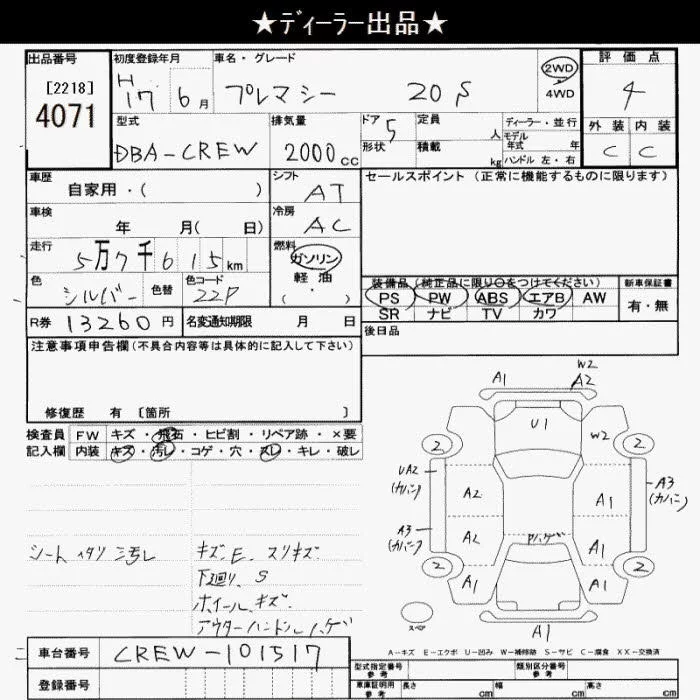 ★ディーラー出品★
出品番号
[2218]
4071
初度登録年月
H17 6月
車名・グレード
プレマシー 20S
2WD
4WD
評価点
4
外装 内装
C C
型式
DBA-CREW
排気量
2000cc
ドア 5
形状
定員 人
積載 kg
ディーラー・並行
モデル年式 年
ハンドル 左・右
車歴
自家用・( )
シフト
AT
セールスポイント(正常に機能するものに限ります)
車検
年 月( 日)
冷房
AC
走行
5万7千615km
燃料
ガソリン
軽油
( ・ )
色
シルバー
色替
色コード
22P
装備品(純正品に限り〇をつけてください)
PS PW ABS エアB AW
SR ナビ TV カワ
新車保証書
有・無
R券 13260円
名変通知期限 月 日
後日品
注意事項申告欄(不具合内容等は具体的に記入して下さい)
修復歴 有 〔箇所 〕
検査員記入欄
FW キズ・飛石・ヒビ割・リペア跡・×要
内装 キズ・汚レ・コゲ・穴・スレ・キレ・破レ
シート ヘタリ 三汚レ
キズ、E、スリキズ
下廻り、S
ホイール、キズ
アウターハンドルハゲ
A1
W2
A2
U1
W2
2 2
UA2
(カバー)
A2
A1
A3
(カバー)
A3
(カバー)
A2
Pハゲ
A1
2 2
A1
A1
スペア
A1
A-キズ E-エクボ U-凹み W-補修跡 S-サビ C-腐食 XX-交換済
車台番号
CREW-101517
登録番号
型式指定番号
参考
類別区分番号
参考
車庫証明用
参考
長さ cm 幅 cm 高さ cm